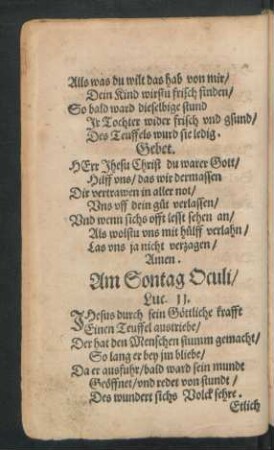 Alls was du wilt das hab von mir/
Dein Kind wirstu frisch finden/
So bald ward dieselbige stund
Jr Tochter wider frisch vnd gsund/
Des Teuffels wurd sie ledig.
Gebet.
HErr Jhesu Christ du warer Gott/
Hilff vns/ das wir dermassen
Dir vertrawen in aller not/
Vns vff dein güt verlassen/
Vnd wenn sichs offt lesst sehen an/
Als wolstu vns mit hülff verlahn/
Las vns ja nicht verzagen/
Amen.
Am Sontag Oculi/
Luc. 11.
JHesus durch sein Göttliche krafft
Einen Teuffel austriebe/
Der hat den Menschen stumm gemacht/
So lang er bey jm bliebe/
Da er ausfuhr/ bald ward sein mundt
Geöffnet/ vnd redet von stundt/
Des wundert sichs Volck sehre.
Etlich